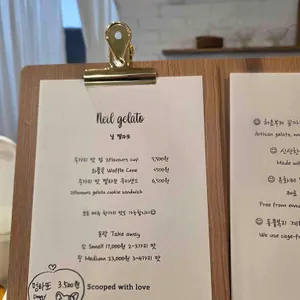 Neil gelato
닐 젤라또
두가지 맛 컵 2flavours cup 5,500원
와플콘 Waffle Cone +500원
두가지 맛 젤라또 쿠키샌드 6,500원
2flavours gelato cookie sandwich
모든 메뉴 한가지 맛도 가능합니다☺
포장 Take away
소 Small 17,000원 2-3가지 맛
중 Medium 23,000원 3-4가지 맛
Scooped with love
3,500원
☺ 처음부터
Artisan gelato,
☺ 신선한
Made wi
☺
Free from
☺
We use cage-f